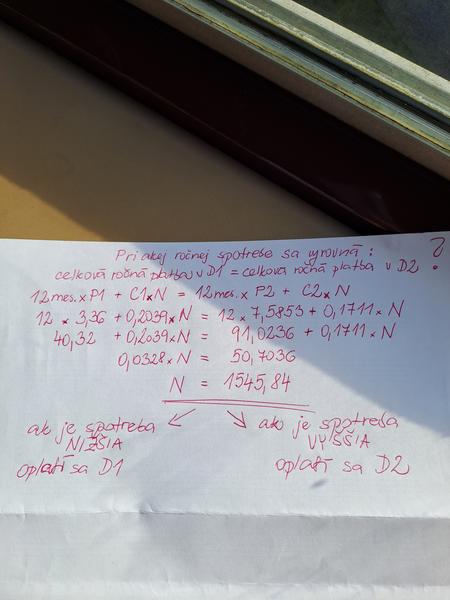 Pri akej ročnej spotrebe sa vyrovná: ?
celková ročná platba v D1 = celková ročná platba v D2
12 mes. x P1 + C1 x N = 12 mes. x P2 + C2 x N
12 x 3,36 + 0,2039 x N = 12 x 7,5853 + 0,1711 x N
40,32 + 0,2039 x N = 91,0236 + 0,1711 x N
0,0328 x N = 50,7036
N = 1545,84
ak je spotreba
NIŽŠIA
oplatí sa D1
ak je spotreba
VYŠŠIA
oplatí sa D2